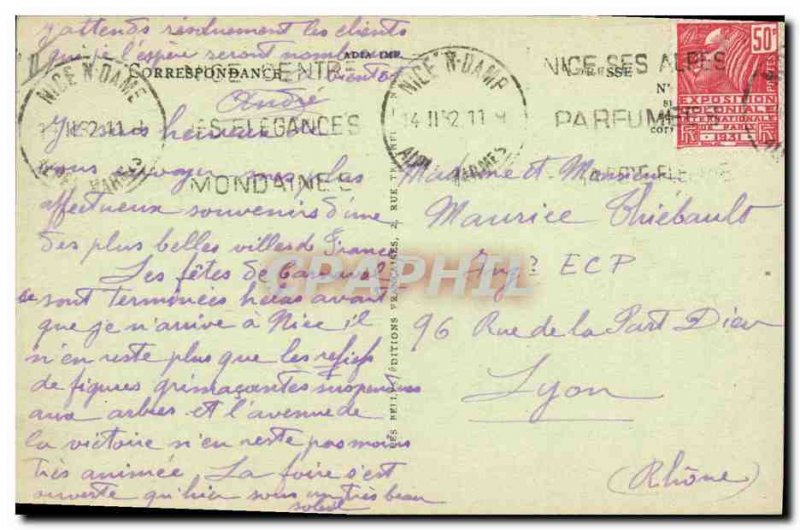 J'attends résolument les clients
qui je l'espère seront nombreux
bientôt
André
CORRESPONDANCE
ADIA IMP.
NICE N-DAME
14 II 32 11
NICE CENTRE
DES ELEGANCES
MONDAINES
NICE N-DAME
14 II 32 11
ALPES MARMES
NICE SES ALPES
PARFUMEES
ADRESSE
50c
POSTES
EXPOSITION
COLONIALE
INTERNATIONALE
DE PARIS
1931
Je suis heureux de
vous envoyer mes plus
affectueux souvenirs d'une
des plus belles villes de France
Les fêtes de Carnaval
se sont terminées hélas avant
que je n'arrive à Nice il
n'en reste plus que les reliefs
de figures grimaçantes suspendues
aux arbres et l'avenue de
la victoire n'en reste pas moins
très animée. La foire s'est
ouverte qu'hier sous un très beau
soleil
Madame et Monsieur
Maurice Thiébault
Ing? ECP
96 Rue de la Part Dieu
Lyon
(Rhône)
LES BELLES ÉDITIONS FRANÇAISES, 2, RUE
CPAPHIL